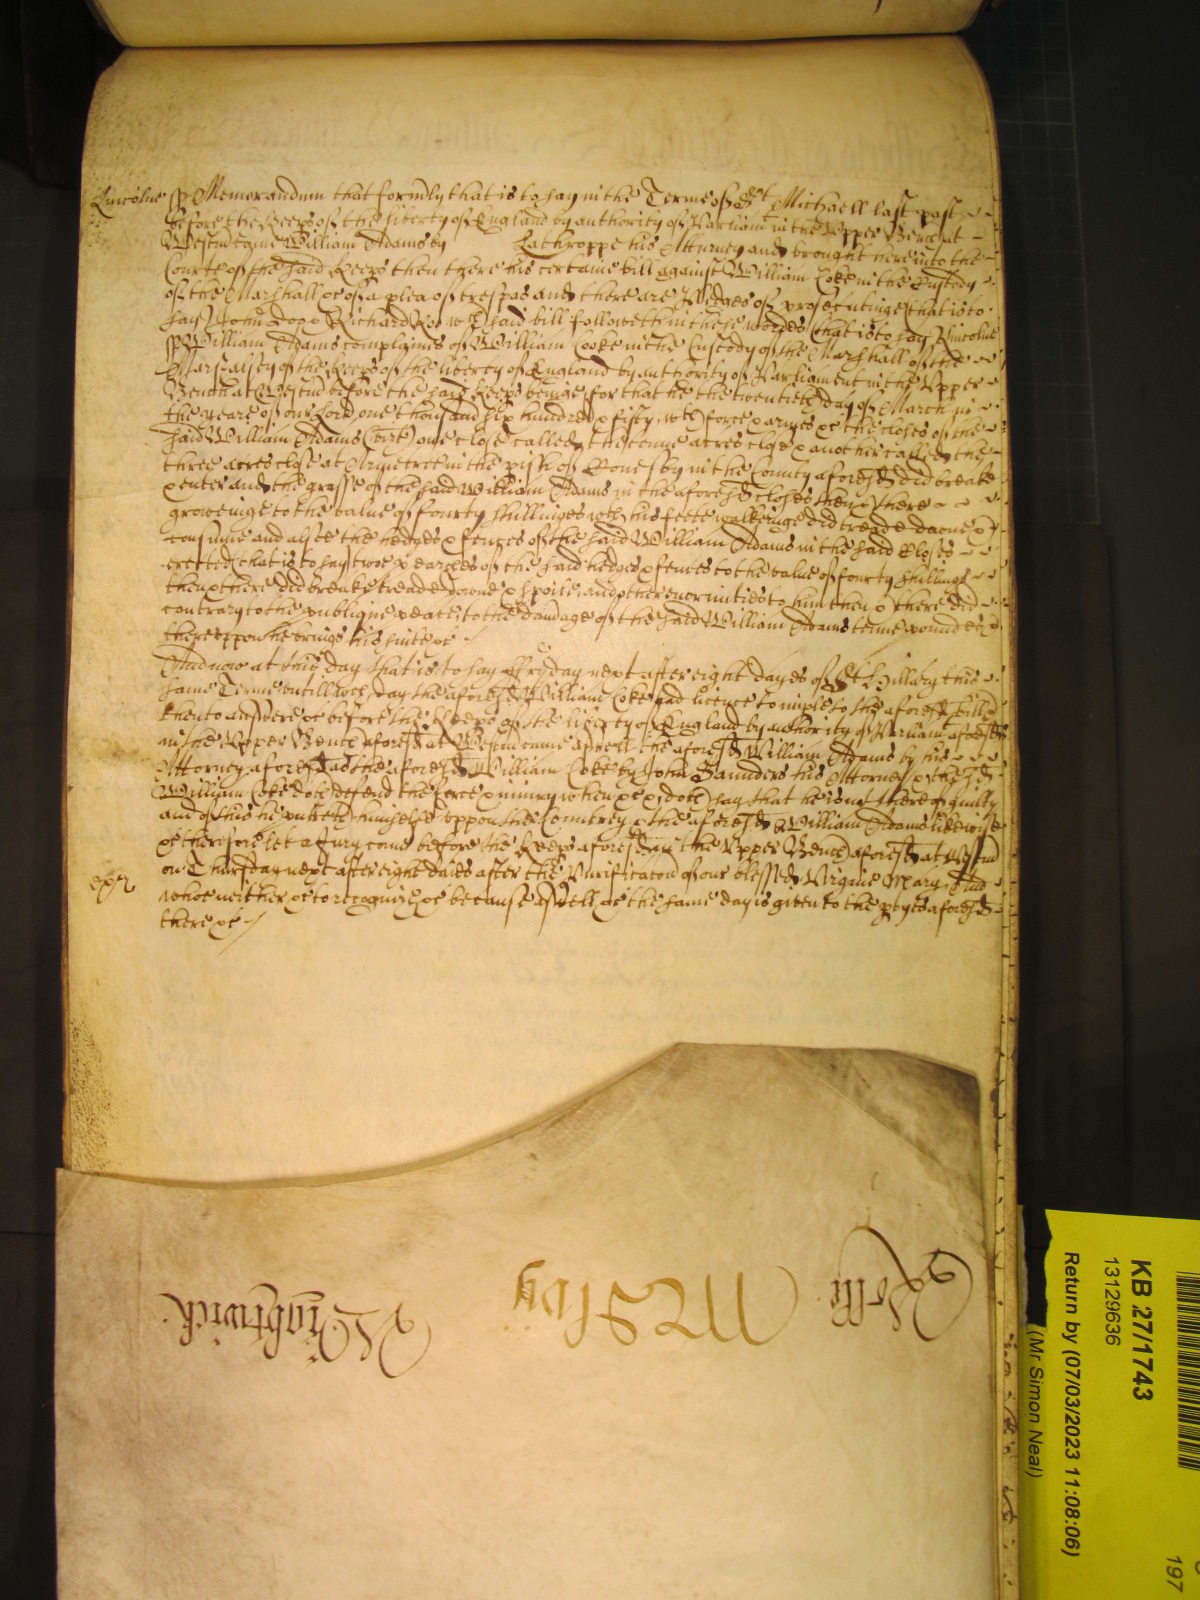 Lincolne ss Memorandum that formly that is to say in the Terme of St Michaell last past
before the Keeps of the liberty of England by authority of Parliamt in the Upper Bench at
Westm came William Adams by Lathroppe his Atturney and brought here into the
Courte of the said Keeps then there his certaine bill against William Coke in the Custody
of the Marshall &c of a plea of trespas and there are pledges of prosecutinge that is to
say John Doo & Richard Roo wch said bill followeth in these wordes that is to say Lincolne
ss William Adams complaines of William Cooke in the Custody of the Marshall of the
Marsalsey of the Keeps of the liberty of England by authority of Parliament in the Upper
Bench at Westm before the said Keeps beinge for that he the twentieth day of March in
the yeare of our Lord one thousand six hundred & fifty wth force & armes &c the closes of the
said William Adams (vizt) one close called the tenne acres close & another called the
three acres close at Armetree in the pish of Gonesby in the County aforesd did breake
& enter and the grasse of the said William Adams in the aforesd closes then & there
groweinge to the value of fourty shillinges wth his feete walkeinge did treade downe &
consume and alsoe the hedges & fences of the said William Adams in the said Closes
erected that is to say twoe pearches of the said hedges & fences to the value of fourty shillings
then & there did breake treade downe & spoile and other enormities to him then & there did
contrary to the publique peace to the damage of the said William Adams tenne pounds &
thereuppon he brings his suite &c
And now at this day that is to say Fryday next after eight dayes of St Hillary this
same Terme untill wch day the aforesd William Coke had licence to imple to the aforesd bill &
then to answere &c before the Keeps of the liberty of England by authority of Parliamt aforesd
in the Upper Bench aforesd at Westm came aswell the aforesd William Adams by his
Attorney aforesd as the aforesd William Coke by John Saunders his Attorney & the sd
William Coke doth defend the force & iniury when &c & doth say that he is not thereof guilty
and of this he putteth himselfe uppon the Countrey & the aforesd William Adams likewise
&c therefore let a Jury come before the Keeps aforesd in the Upper Bench aforesd at Westm
on Thursday next after eight daies after the Purificacon of our blessed Virgine Mary And
whoe neither &c to recognize &c because aswell &c the same day is given to the ptyes aforesd
there &c
Wightwick
KB 27/1743
13129636
Return by (07/03/2023 11:08:06)
(Mr Simon Neal)
197